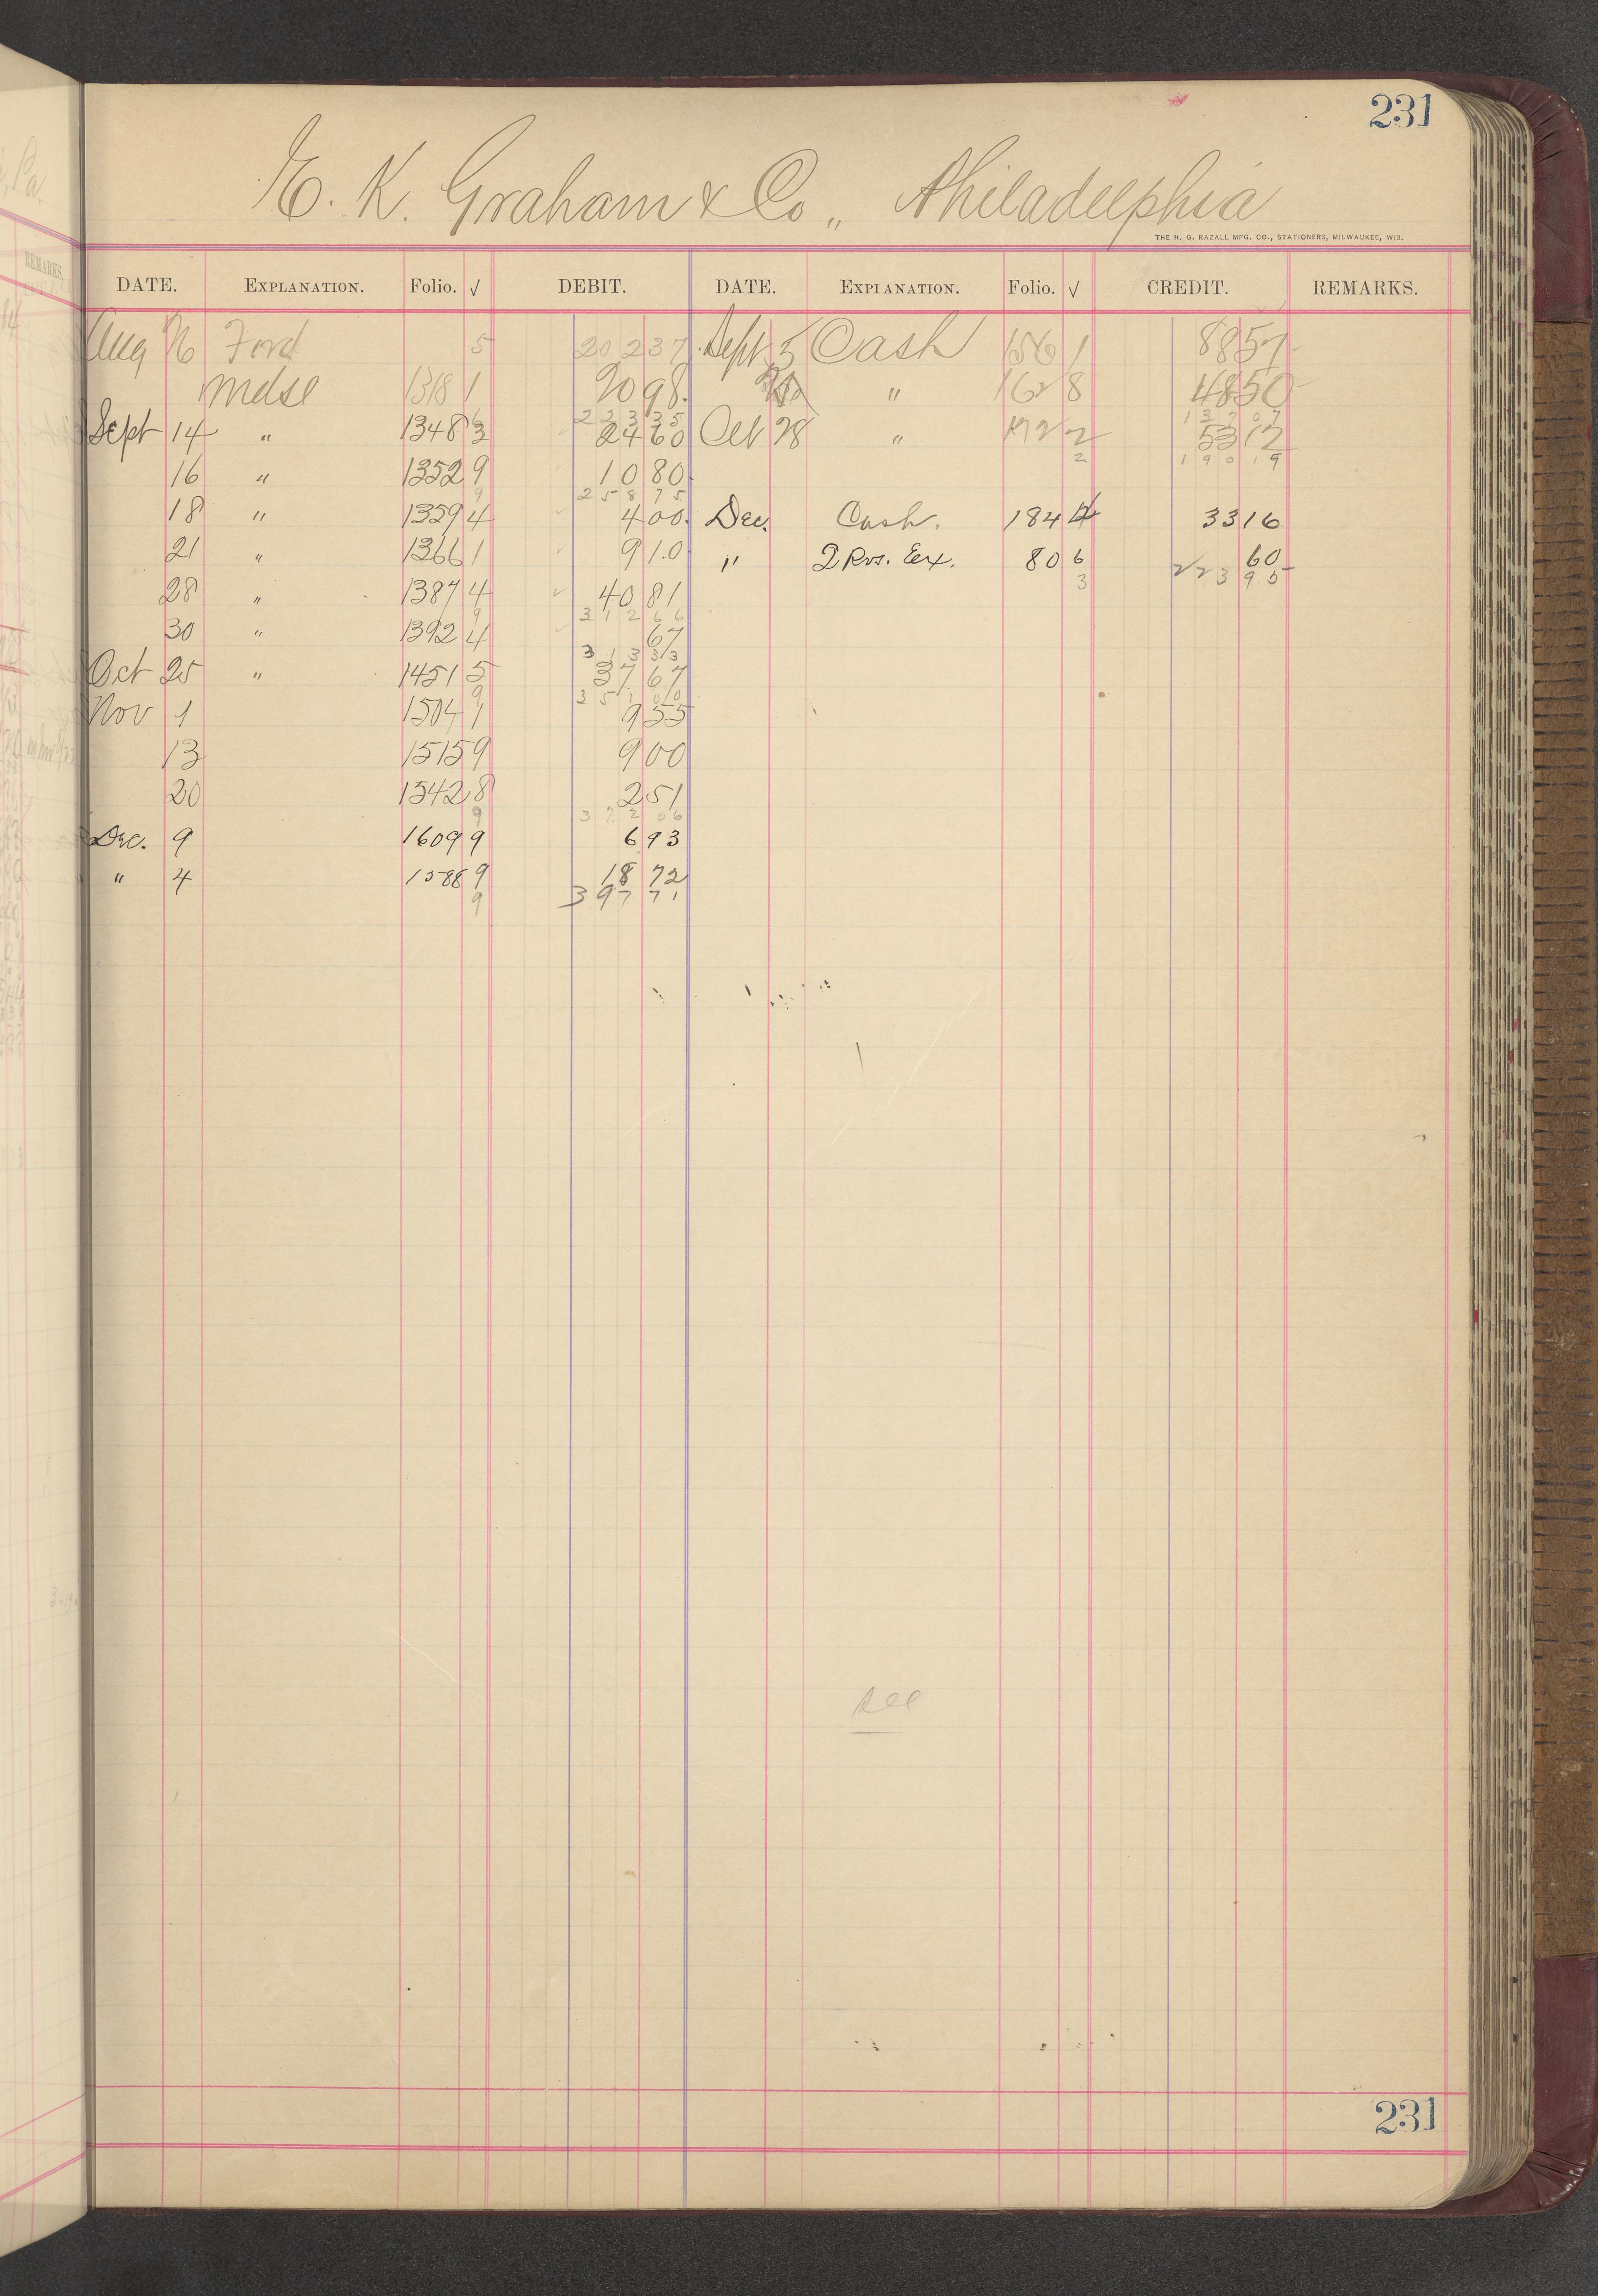 231
E. K. Graham & Co., Philadelphia
THE H. G. RAZALL MFG. CO., STATIONERS, MILWAUKEE, WIS.
DATE. EXPLANATION. Folio. √ DEBIT. DATE. EXPLANATION. Folio. √ CREDIT. REMARKS.
Aug 16 Ford 5 202 37 Sept 5 Cash 156 1 88 57
Mdse 1318 1 20 98 " 162 8 48 50
6 223 35 137 07
Sept 14 " 1348 3 24 60 Oct 28 " 172 2 53 12
2 190 19
16 " 1352 9 10 80
9 258 75
18 " 1359 4 4 00 Dec. Cash. 184 4 33 16
21 " 1366 1 9 10 " 2 Rvs. Ex. 80 6 60
3 223 95
28 " 1387 4 40 81
9 312 66
30 " 1392 4 67
313 33
Oct 25 " 1451 5 37 67
9 351 00
Nov 1 1504 1 9 55
13 1515 9 9 00
20 1542 8 2 51
9 372 06
Dec. 9 1609 9 6 93
" 4 1588 9 18 72
9 397 71
see
231